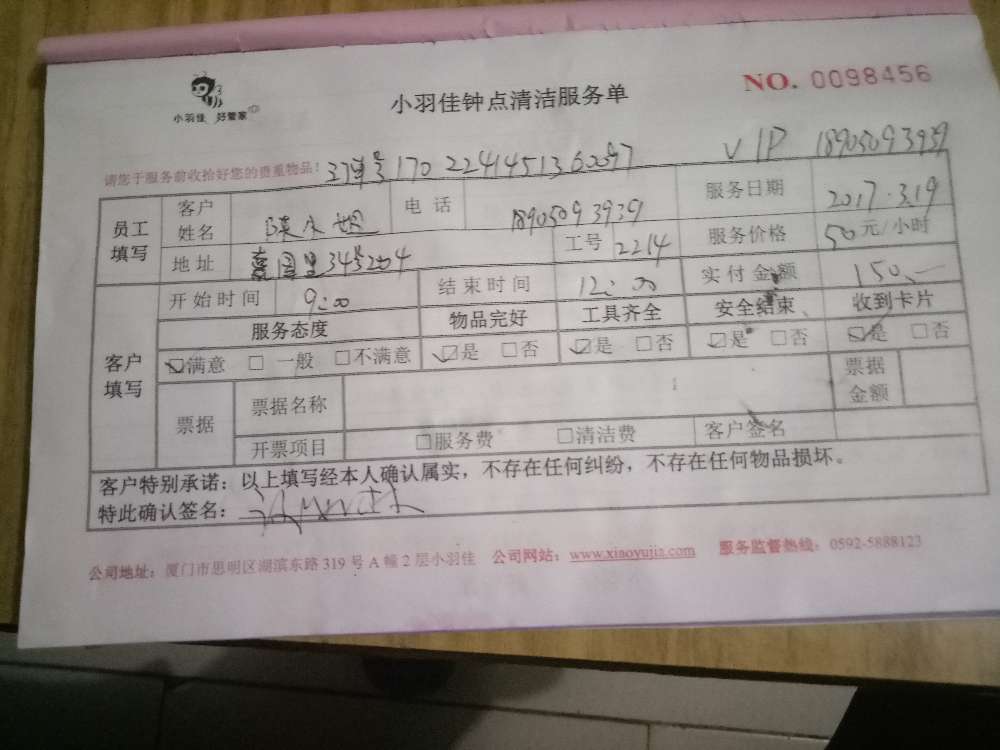 小羽佳 好管家
小羽佳钟点清洁服务单
NO. 0098456
请您于服务前收拾好您的贵重物品！订单号170224145136097
VIP 18905093939
员工填写 客户姓名 陈小姐 电话 18905093939 服务日期 2017.3.19
地址 园里34号204 工号 2214 服务价格 50元/小时
客户填写 开始时间 9:00 结束时间 12:00 实付金额 150.—
服务态度 物品完好 工具齐全 安全结束 收到卡片
☑满意 □一般 □不满意 ☑是 □否 ☑是 □否 ☑是 □否 ☑是 □否
票据 票据名称 票据金额
开票项目 □服务费 □清洁费 客户签名
客户特别承诺：以上填写经本人确认属实，不存在任何纠纷，不存在任何物品损坏。
特此确认签名：
公司地址：厦门市思明区湖滨东路319号A幢2层小羽佳 公司网站：www.xiaoyujia.com 服务监督热线：0592-5888123